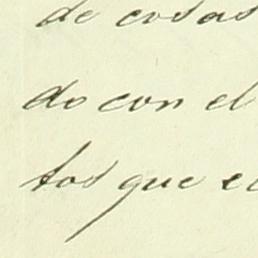 de cosas
do con el
tos que el